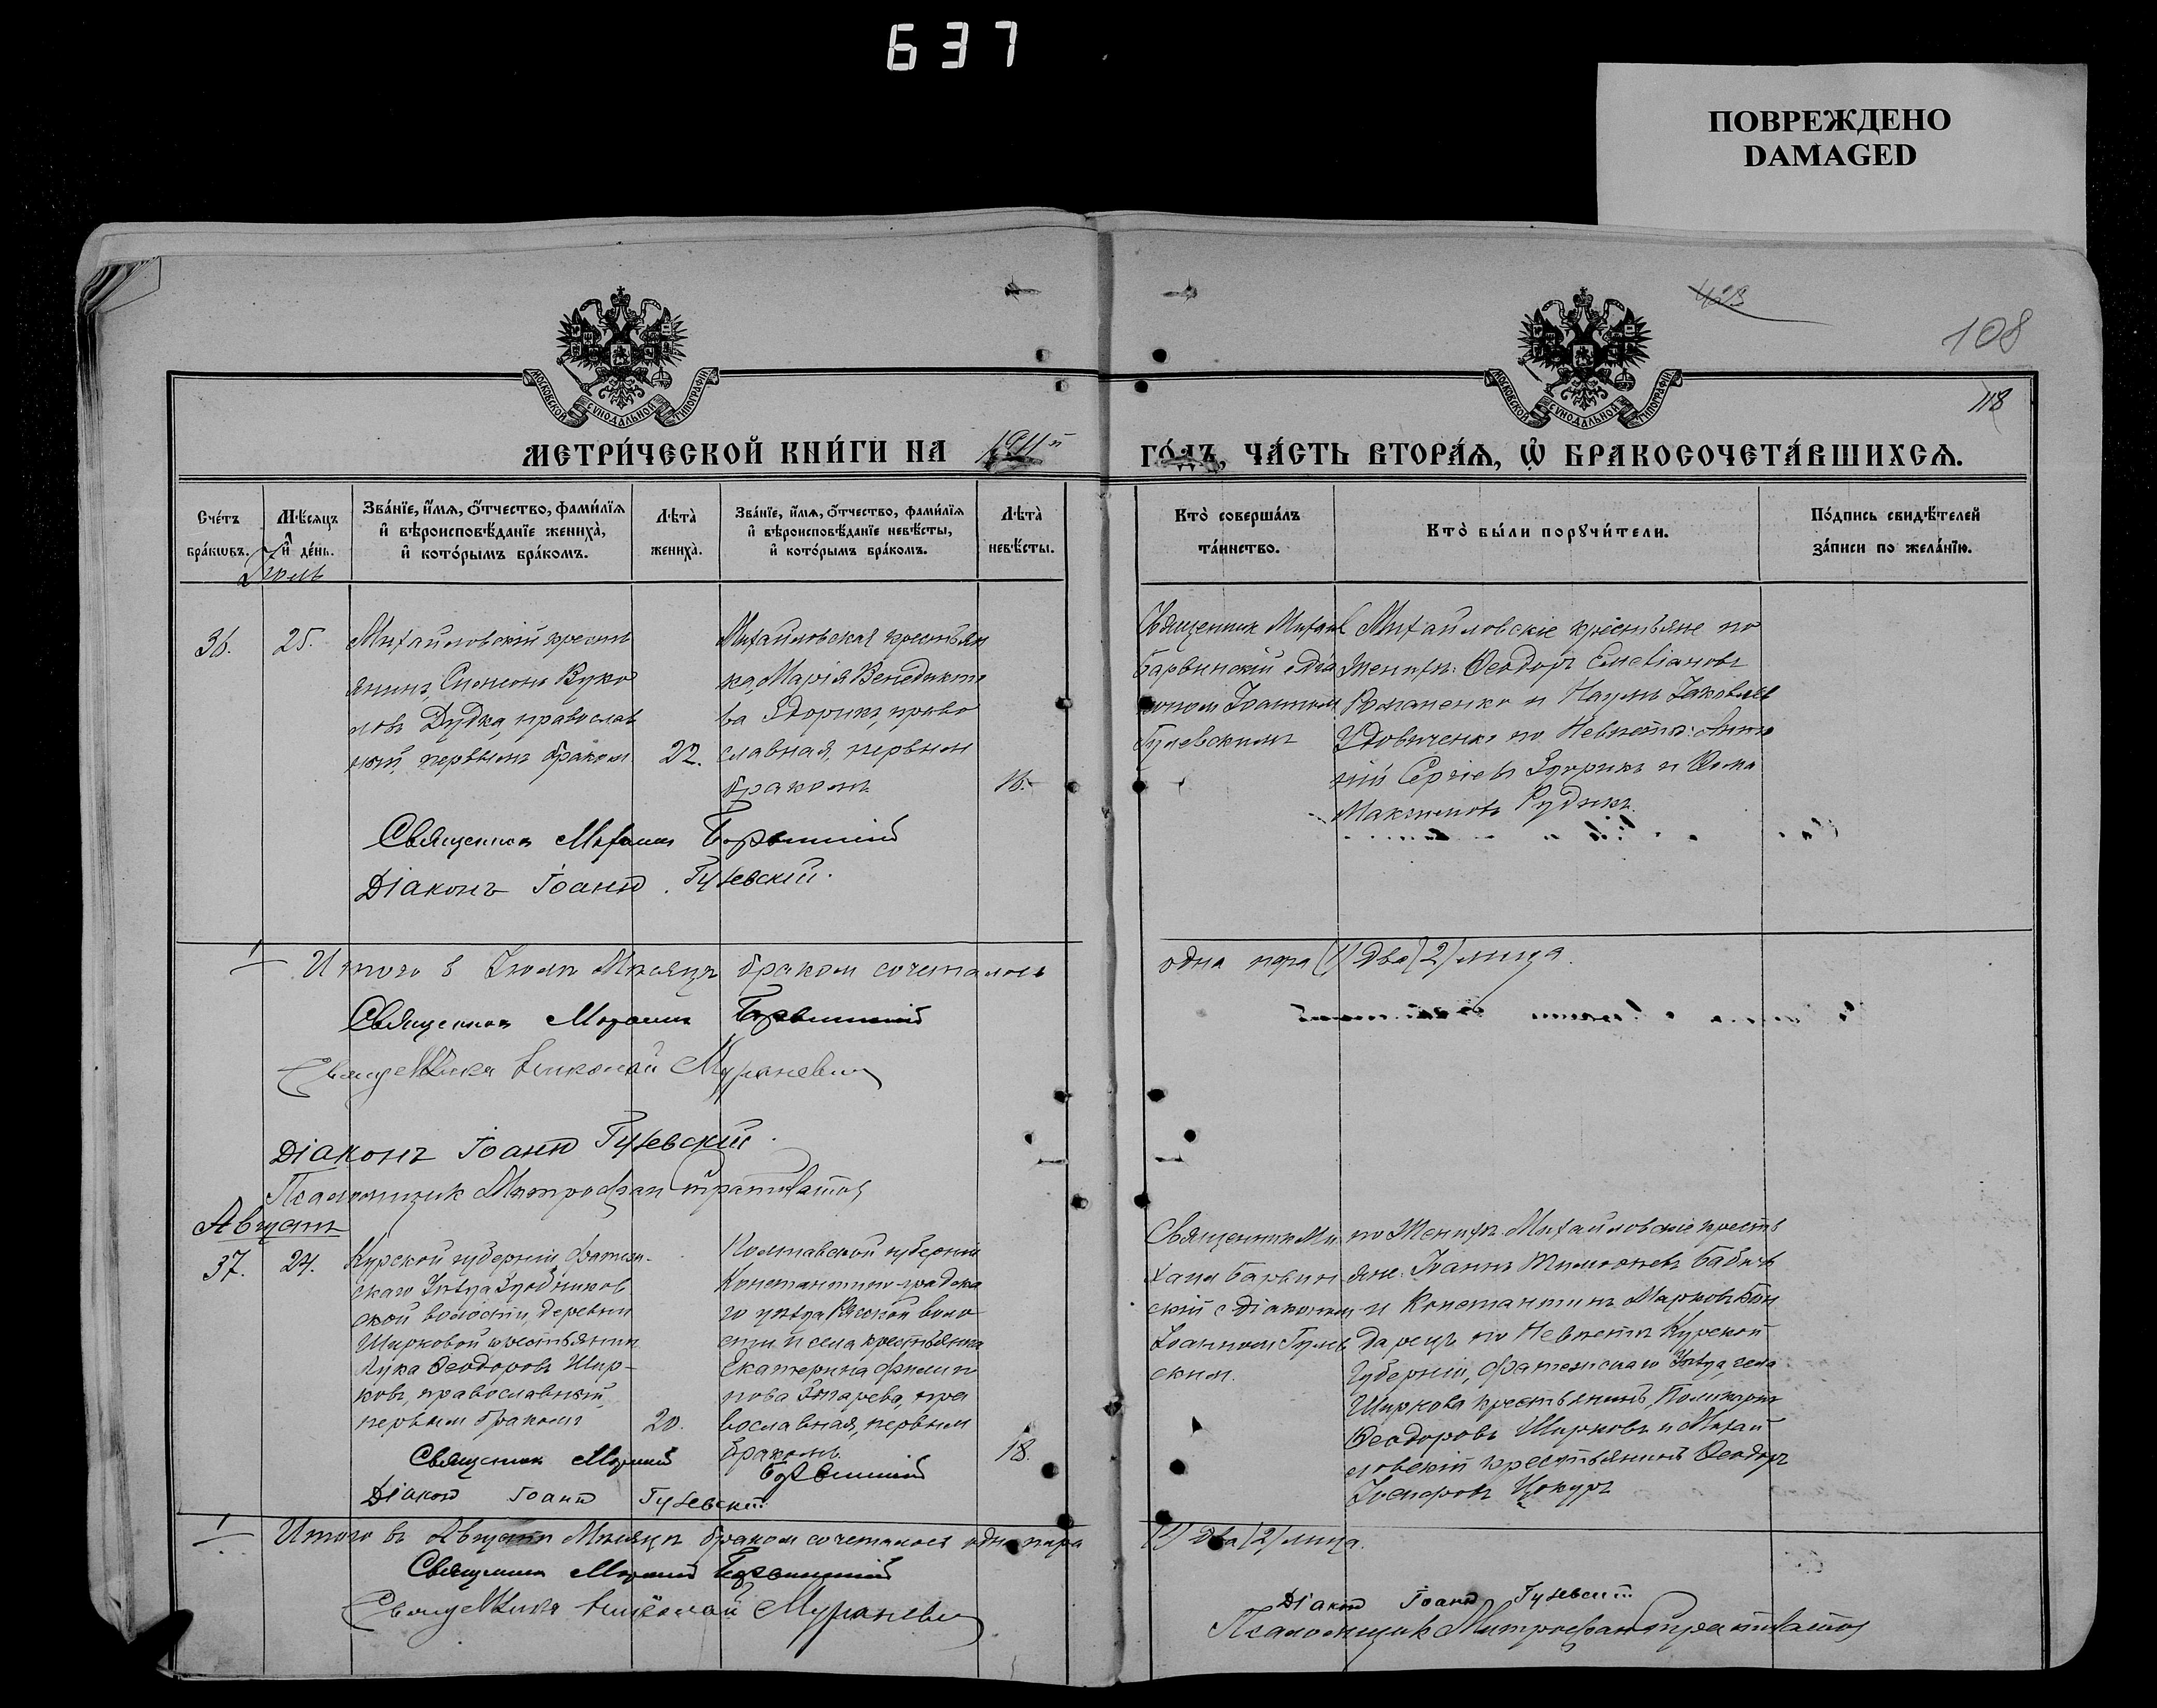 637
ПОВРЕЖДЕНО
DAMAGED
428
108
118
МОСКОВСКОЙ СѴНОДАЛЬНОЙ ТИПОГРАФІИ
МОСКОВСКОЙ СѴНОДАЛЬНОЙ ТИПОГРАФІИ
МЕТРИ́ЧЕСКОЙ КНИ́ГИ НА 1911й ГО́ДЪ, ЧА́СТЬ ВТОРА́Ѧ, Ѡ҆ БРАКОСОЧЕТА́ВШИХСѦ.
Сче́тъ
бра́кѡвъ.
Мѣ́сѧцъ
и҆ де́нь.
Зва́нїе, и҆́мѧ, ѻ҆́тчество, фами́лїѧ
и҆ вѣроисповѣ́данїе жениха̀,
и҆ кото́рымъ бра́комъ.
Лѣта̀
жениха̀.
Зва́нїе, и҆́мѧ, ѻ҆́тчество, фами́лїѧ
и҆ вѣроисповѣ́данїе невѣ́сты,
и҆ кото́рымъ бра́комъ.
Лѣта̀
невѣ́сты.
Кто̀ соверша́лъ
та́инство.
Кто̀ бы́ли порꙋчи́тели.
По́дпись свидѣ́телей
за́писи по жела́нїю.
Іюль
36.
25.
Михайловскій кресть
янинъ, Симеонъ Вуко
ловъ Дудка, православ
ный, первымъ бракомъ
22.
Михайловская крестьян
ка, Марія Венедикто
ва, право
славная, первымъ
бракомъ
16.
Священник Михаил
Барвинскій с діа
коном Іоанном
Гулевскимъ
Михайловскіе крестьяне по
жениху: Ѳеодоръ Емеліановъ
Романенко и Наумъ Іаковлевъ
Удовиченко по Невѣстѣ: Анто
ній Сергіевъ и Ѳома
Максимовъ Рудикъ.
Священник Михаил Барвинский
Діаконъ Іоаннъ Гулевскій.
1
Итого в Іюлѣ Мѣсяцѣ браком сочеталось
одна пара (1) два (2) лица.
Священник Михаил Барвинский
Священникъ Николай
Діаконъ Іоаннъ Гулевскій.
Псаломщик Митрофан
Августъ
37.
24.
Курской губерніи, Фатеж-
скаго Уѣзда
ской волости, деревни
Ширковой крестьянинъ
Лука Ѳеодоровъ Шир-
ковъ, православный,
первым бракомъ
20.
Полтавской губерніи
Константиноградска
го уѣзда воло
сти и села крестьянка
Екатерина Филип
пова пра
вославная, первым
бракомъ.
18.
Священник Ми
хаил Барвин
скій с діаконом
Іоанном Гулев
скимъ.
по Жениху: Михайловскіе кресть
яне: Іоаннъ Бабичъ
и Константинъ Марковъ Бон
дарецъ по Невѣстѣ Курской
Губерніи, Фатежскаго Уѣзда, села
Ширкова крестьянинъ, Поликарпъ
Ѳеодоровъ Ширковъ и Михай
ловскій крестьянинъ Ѳеодоръ
Цокуръ
Священник Михаил Барвинский
Діаконъ Іоаннъ Гулевскій
1
Итого въ Августѣ Мѣсяцѣ браком сочеталось одна пара (1) два (2) лица.
Священник Михаил Барвинский
Священникъ Николай
Діаконъ Іоаннъ Гулевскій
Псаломщик Митрофан